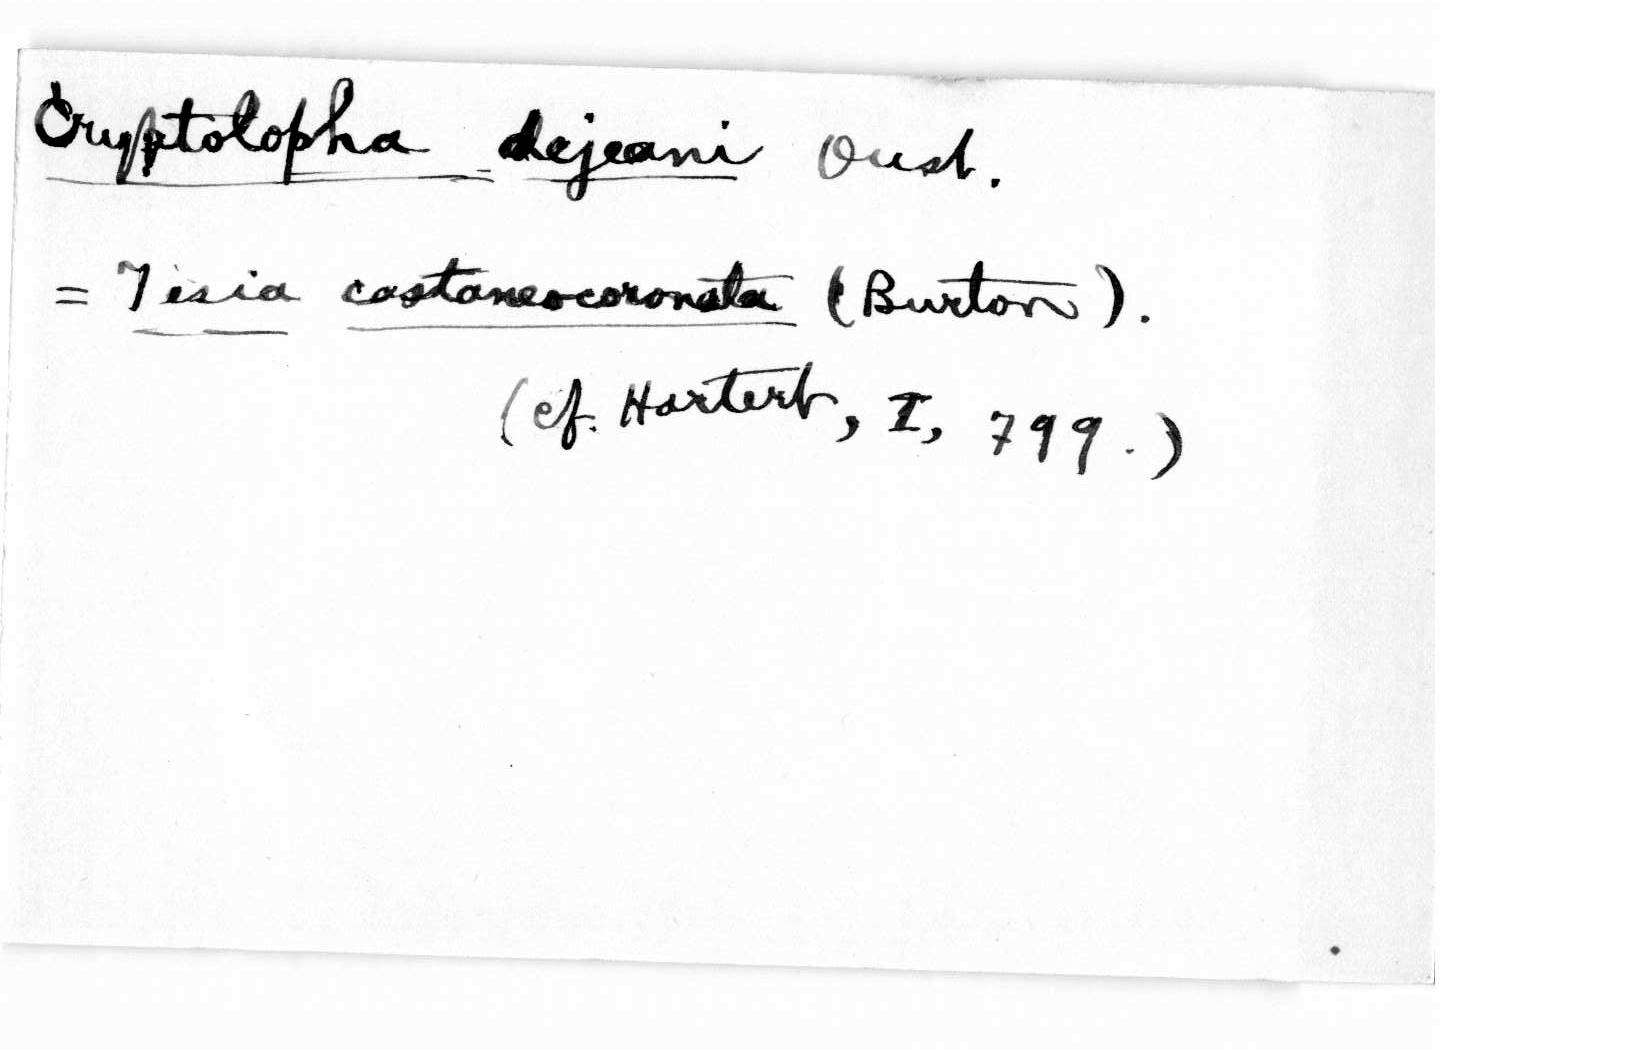 Cryptolopha dejeani Oust.
= Tesia castaneocoronata (Burton).
(cf. Hartert, I, 799.)